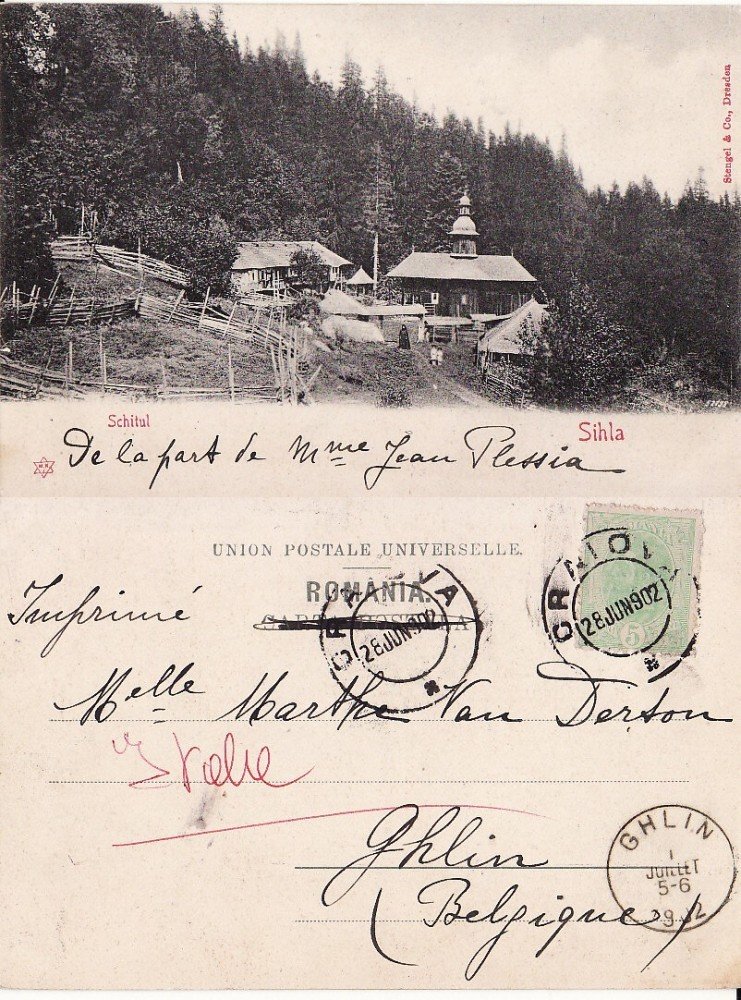 Stengel & Co., Dresden
Schitul
Sihla
De la part de Mme Jean Plessia
UNION POSTALE UNIVERSELLE.
ROMÂNIA.
CRAIOVA
28JUN902
CRAIOVA
28JUN902
5
Imprimé
Melle Marthe Van Derson
Ghlin
(Belgique)
GHLIN
1
JUILLET
5-6